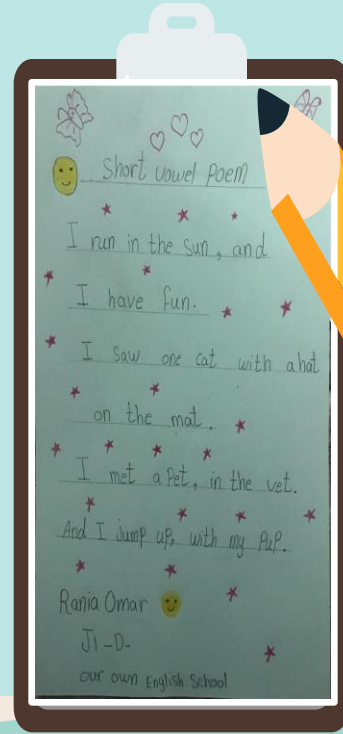 Short vowel Poem
I run in the sun, and
I have fun.
I saw one cat with a hat
on the mat.
I met a Pet, in the vet.
And I jump up, with my PuP.
Rania Omar
J1-D-
our own English School